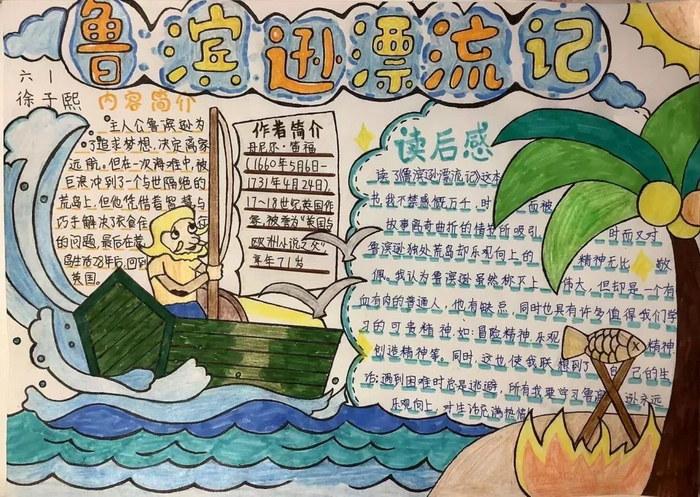 鲁滨逊漂流记
六1
徐子熙
内容简介
主人公鲁滨逊为
了追求梦想,决定离家
远航。但在一次海难中,被
巨浪冲到了一个与世隔绝的
荒岛上,但他凭借着智慧与
巧手解决了衣食住 行
的问题,最后在荒
岛生活28年后,回到
英国。
作者简介
丹尼尔·笛福
(1660年5月6日-
1731年4月24日),
17~18世纪英国作
家,被誉为"英国与
欧洲小说之父"
享年71岁
读后感
读了《鲁滨逊漂流记》这本
书,我不禁感慨万千,时 而被
故事离奇曲折的情节所吸引 时而又对
鲁滨逊独处荒岛却乐观向上的 精神无比 敬
佩。我认为鲁滨逊虽然称不上 伟大,但却是一个有
血有肉的普通人,他有缺点,同时也具有许多值得我们学
习的可贵精神,如:冒险精神,乐观 精神
创造精神等。同时,这也使我联想到了 自己的生
活:遇到困难时总是逃避,所有我要学习鲁滨 逊永远
乐观向上,对生活充满热情